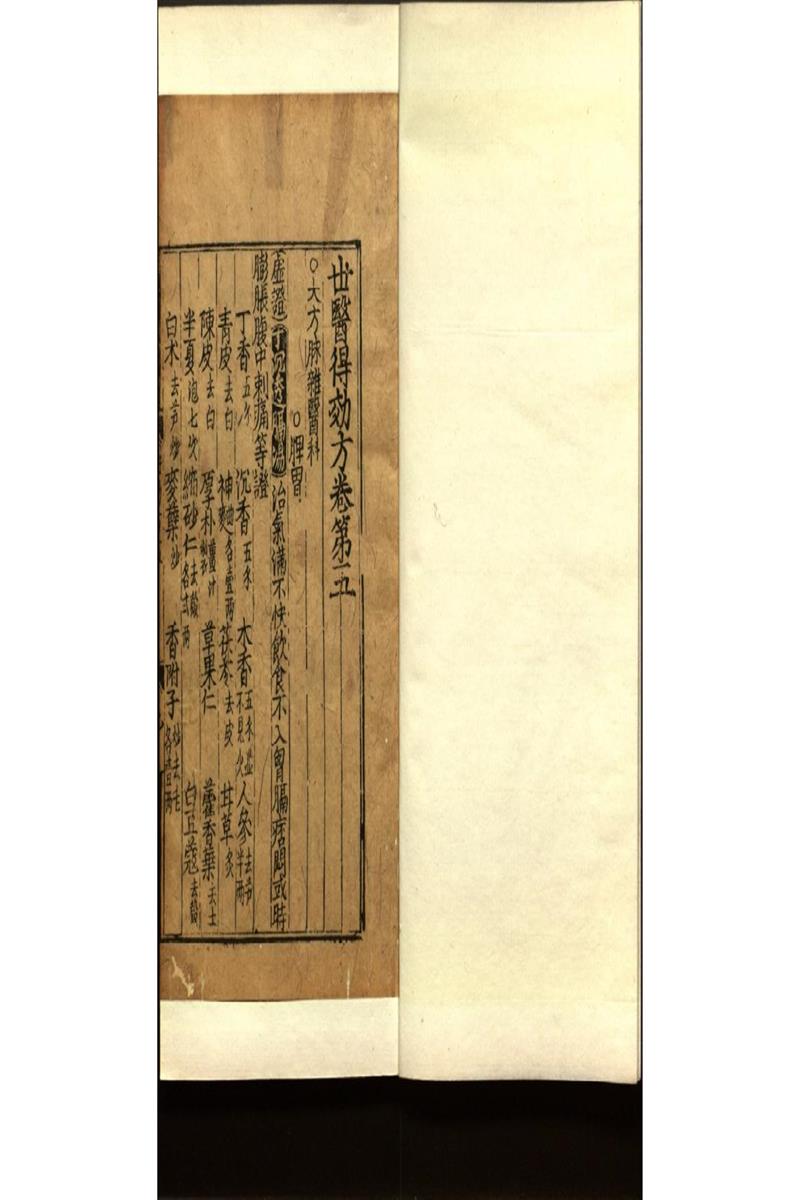 世醫得効方卷第五
○大方脉雜醫科
○脾胃
虛證 丁沉透膈湯 治氣滿不快飲食不入胃膈痞悶或時
膨脹腹中刺痛等證
丁香五錢 沉香五錢 木香五錢不見火 人參去芦半兩
青皮去白 神麯各壹兩 茯苓去皮 甘草炙
陳皮去白 厚朴薑汁 草果仁 藿香葉去土
半夏泡七次 縮砂仁去殼各弍兩 白豆蔻去殼
白术去芦炒 麥蘖炒 香附子炒去毛各壹兩